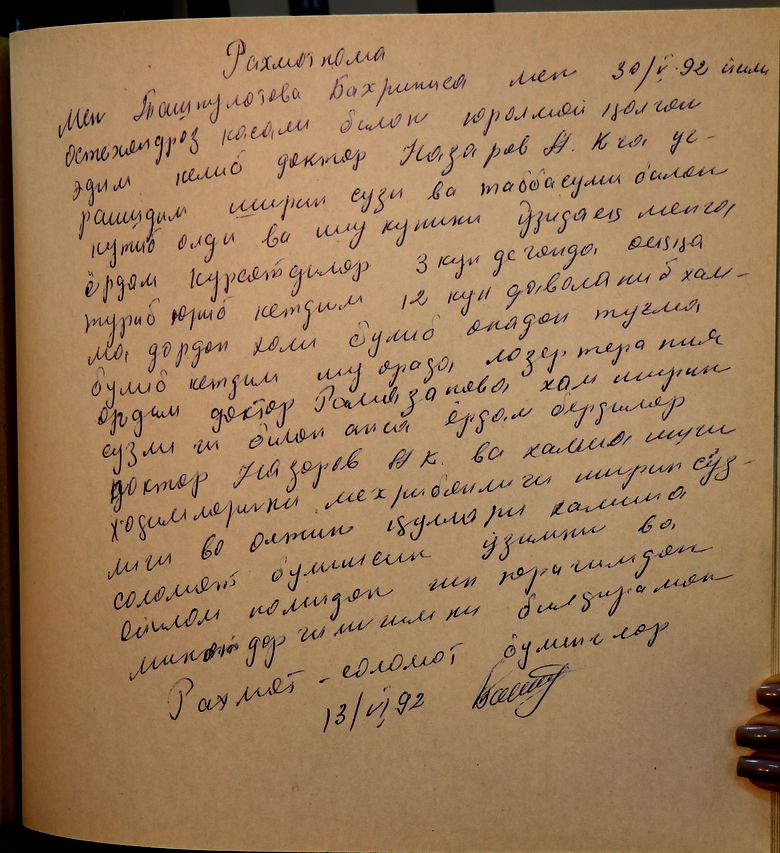 Рахматнома
Мен Ташпулотова Бахриниса мен 30/V-92 йили
остехондроз касали билан юролмой қолган
эдим келиб доктор Назаров А. К га уч-
рашдим ширин сузи ва таббасуми билан
кутиб олди ва шу купики ўзидаёқ менга
ёрдам курсатдилар 3 кун деганда оёққа
туриб юриб кетдим 12 кун даволаниб хам-
ма дардан холи булиб онадан тугма
булиб кетдим шу орада лазер терапия
ёрдам доктор Рамазанова хам ширин
сузлиги билан анча ёрдам бердилар
Доктор Назаров А К. ва хамма шуги
ходимларини мехрибонлиги ширин сўз-
лиги ва олтин қуллари хамиша
саломат булишсин ўзимни ва
оилам номидан чин юрагимдан
миннатдорчилигимни билдираман
Рахмат - саломат булинглар
13/VI 92